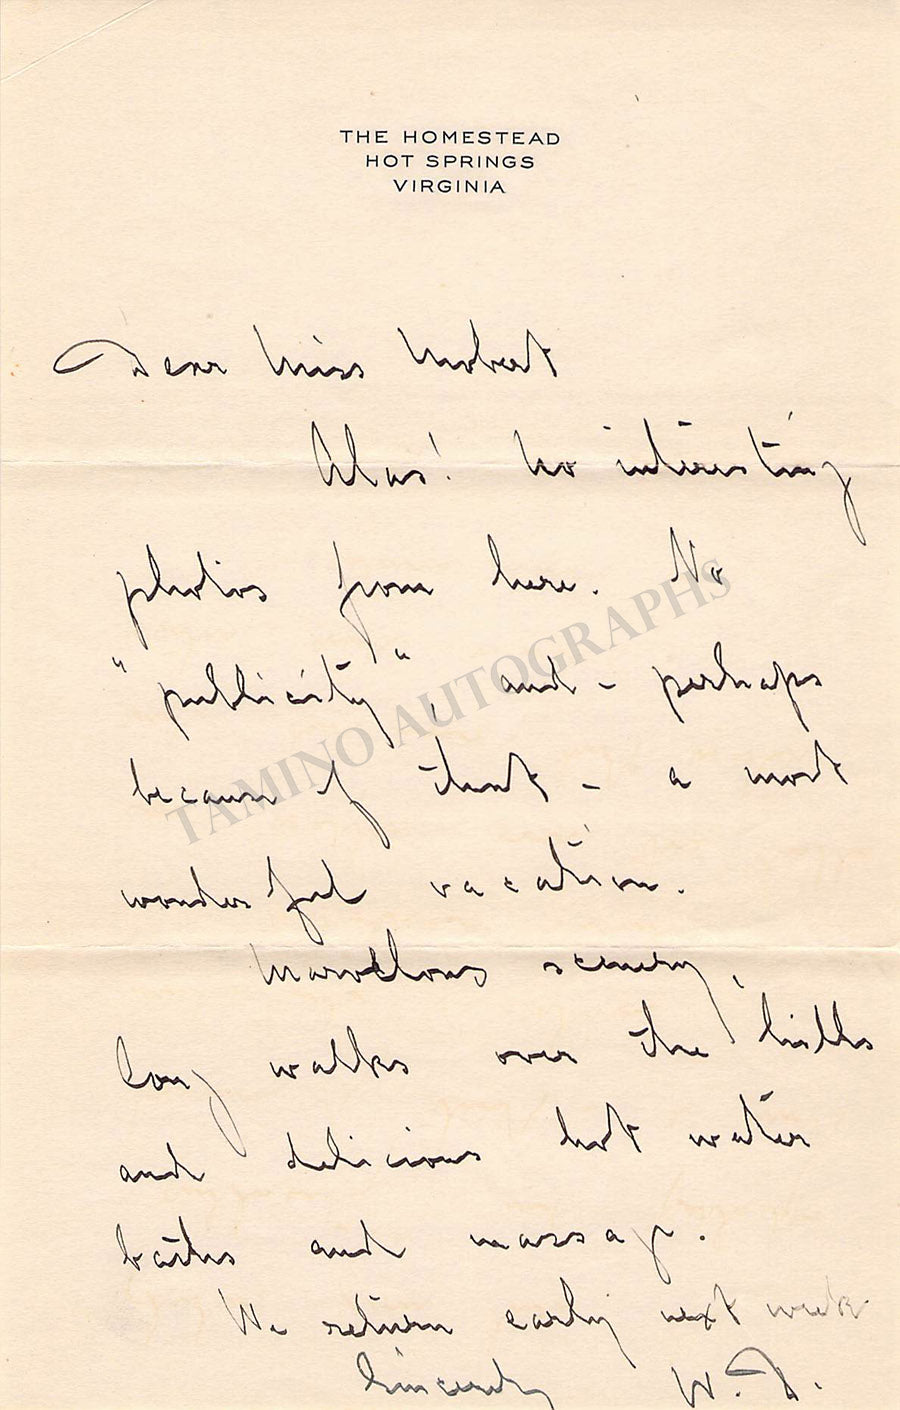 THE HOMESTEAD
HOT SPRINGS
VIRGINIA
Dear Miss
Alas! no interesting
photos from here. No
"publicity", and – perhaps
because of that – a most
wonderful vacation.
Marvelous scenery,
long walks over the hills
and delicious hot water
baths and massage.
We return early next week
Sincerely W. D.
TAMINO AUTOGRAPHS